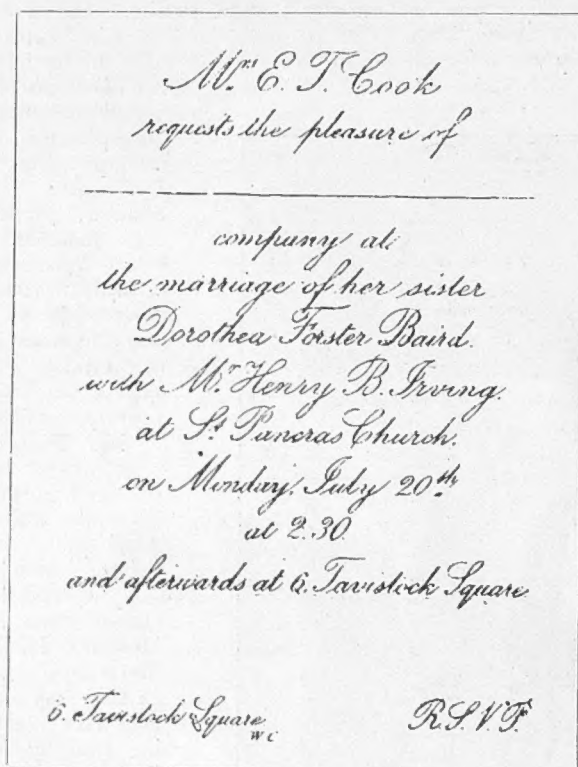 Mrs. E. T. Cook
requests the pleasure of
company at
the marriage of her sister
Dorothea Forster Baird.
with Mr. Henry B. Irving.
at St. Pancras Church.
on Monday, July 20th,
at 2.30.
and afterwards at 6. Tavistock Square.
6. Tavistock Square.
W C
R.S.V.P.